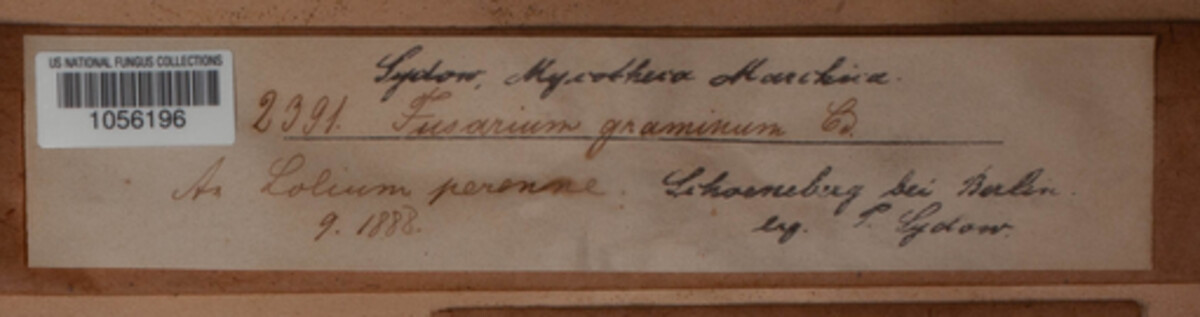 US NATIONAL FUNGUS COLLECTIONS
1056196
Sydow, Mycotheca Marchica.
2391. Fusarium graminum Cd.
An Lolium perenne. Schoeneberg bei Berlin.
9. 1888. leg. P. Sydow.